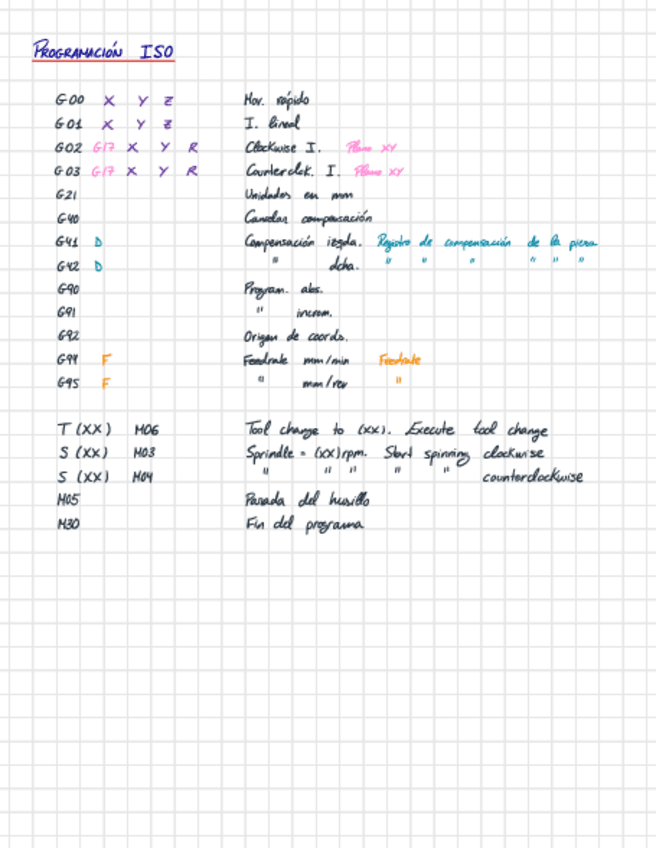 PROGRAMACIÓN ISO
G00 X Y Z Mov. rápido
G01 X Y Z I. lineal
G02 G17 X Y R Clockwise I. Plano XY
G03 G17 X Y R Counterclck. I. Plano XY
G21 Unidades en mm
G40 Cancelar compensación
G41 D Compensación izqda. Registro de compensación de la pieza
G42 D " dcha. " " " " " "
G90 Program. abs.
G91 " increm.
G92 Origen de coords.
G94 F Feedrate mm/min Feedrate
G95 F " mm/rev "
T (XX) M06 Tool change to (XX). Execute tool change
S (XX) M03 Sprindle = (XX)rpm. Start spinning clockwise
S (XX) M04 " " " " " counterclockwise
M05 Parada del husillo
M30 Fin del programa